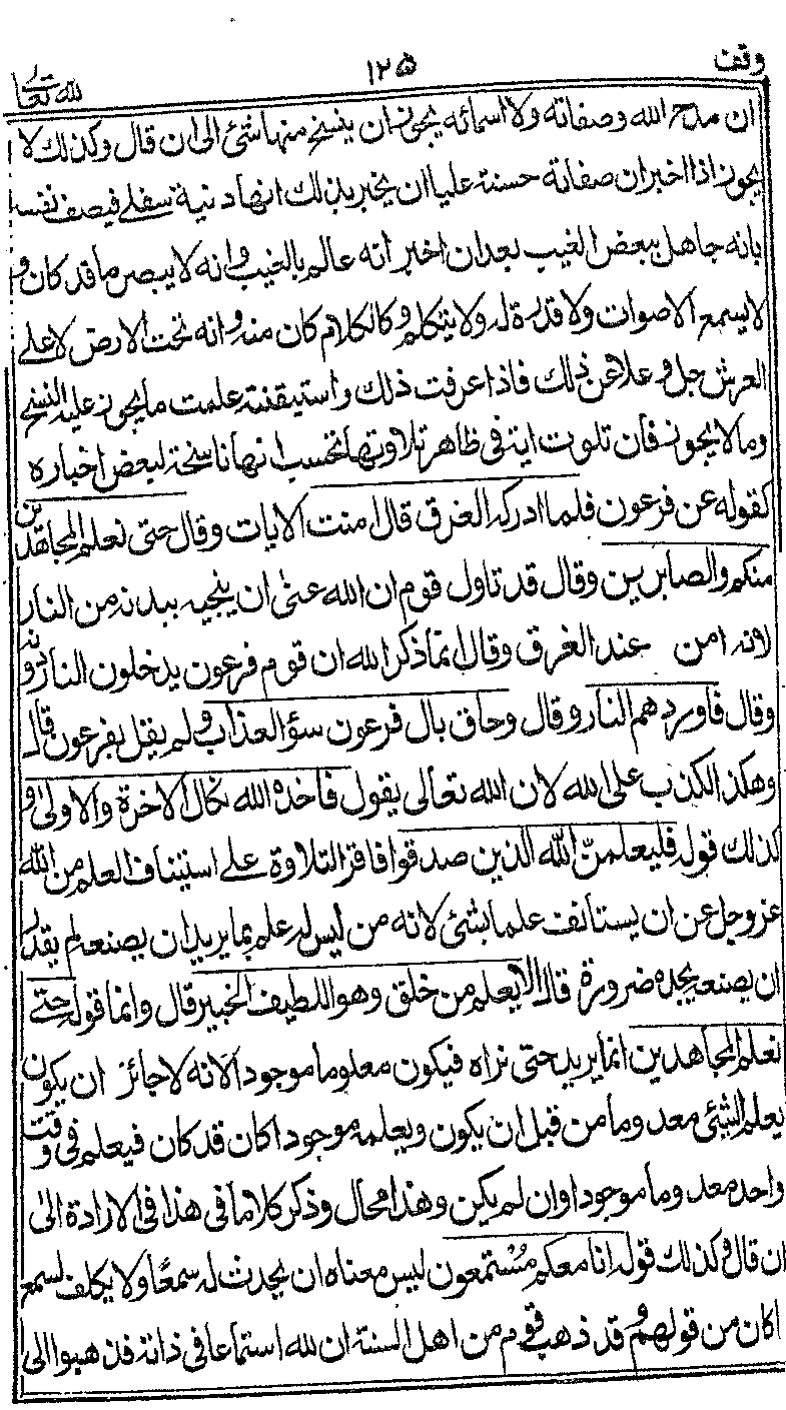 وقف
١٢۵
لله تعالى
ان مدح الله وصفاته ولا اسمائه يجوز ان ينسخ منها شئ الى ان قال وكذلك لا
يجوز اذا اخبر ان صفاته حسنة عليا ان يخبر بذلك انها دنية سفلے فيصف نفسه
بانه جاهل ببعض الغيب بعد ان اخبر انه عالم بالغيب وانه لا يبصر ما قد كان و
لا يسمع الاصوات ولا قدرة له ولا يتكلم ولا الكلام كان منه وانه تحت الارض لا علے
العرش جل وعلا عن ذلك فاذا عرفت ذلك واستيقنته علمت ما يجوز عليه النسخ
وما لا يجوز فان تلوت اية في ظاهر تلاوتها تحسب انها ناسخة لبعض اخباره
كقوله عن فرعون فلما ادركه الغرق قال امنت الايات وقال حتى نعلم المجاهدين
منكم والصابرين وقال قد تاول قوم ان الله عنى ان ينجيه ببدنه من النار
لانه امن عند الغرق وقال انما ذكر الله ان قوم فرعون يدخلون النار دونه
وقال فاوردهم النار وقال وحاق بال فرعون سؤ العذاب ولم يقل بفرعون قال
وهكذ الكذب على الله لان الله تعالى يقول فاخذه الله نكال الاخرة والاولى و
كذلك قوله فليعلمن الله الذين صدقوا فاقر التلاوة علے استيناف العلم من الله
عز وجل عن ان يستانف علما بشئ لانه من ليس له علم بما يريد ان يصنعه لم يقدر
ان يصنعه يجده ضرورة قال الا يعلم من خلق وهو اللطيف الخبير قال وانما قوله حتے
نعلم المجاهدين انما يريد حتى نراه فيكون معلوما موجودا لانه لا جائز ان يكون
يعلم الشئ معدوما من قبل ان يكون ويعلمه موجودا كان قد كان فيعلم في وقت
واحد معدوما موجودا وان لم يكن وهذا محال وذكر كلاما في هذا في الارادة الى
ان قال وكذلك قوله انا معكم مستمعون ليس معناه ان يحدث له سمعا ولا يكلف لسمع
اكان من قولهم وقد ذهب قوم من اهل السنة ان لله استماعا في ذاته فذهبوا الى